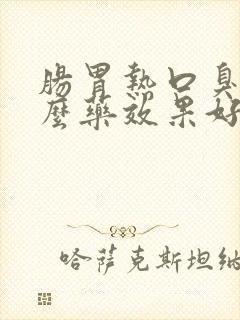 腸胃熱口臭
麼藥效果好
哈萨克斯坦纳